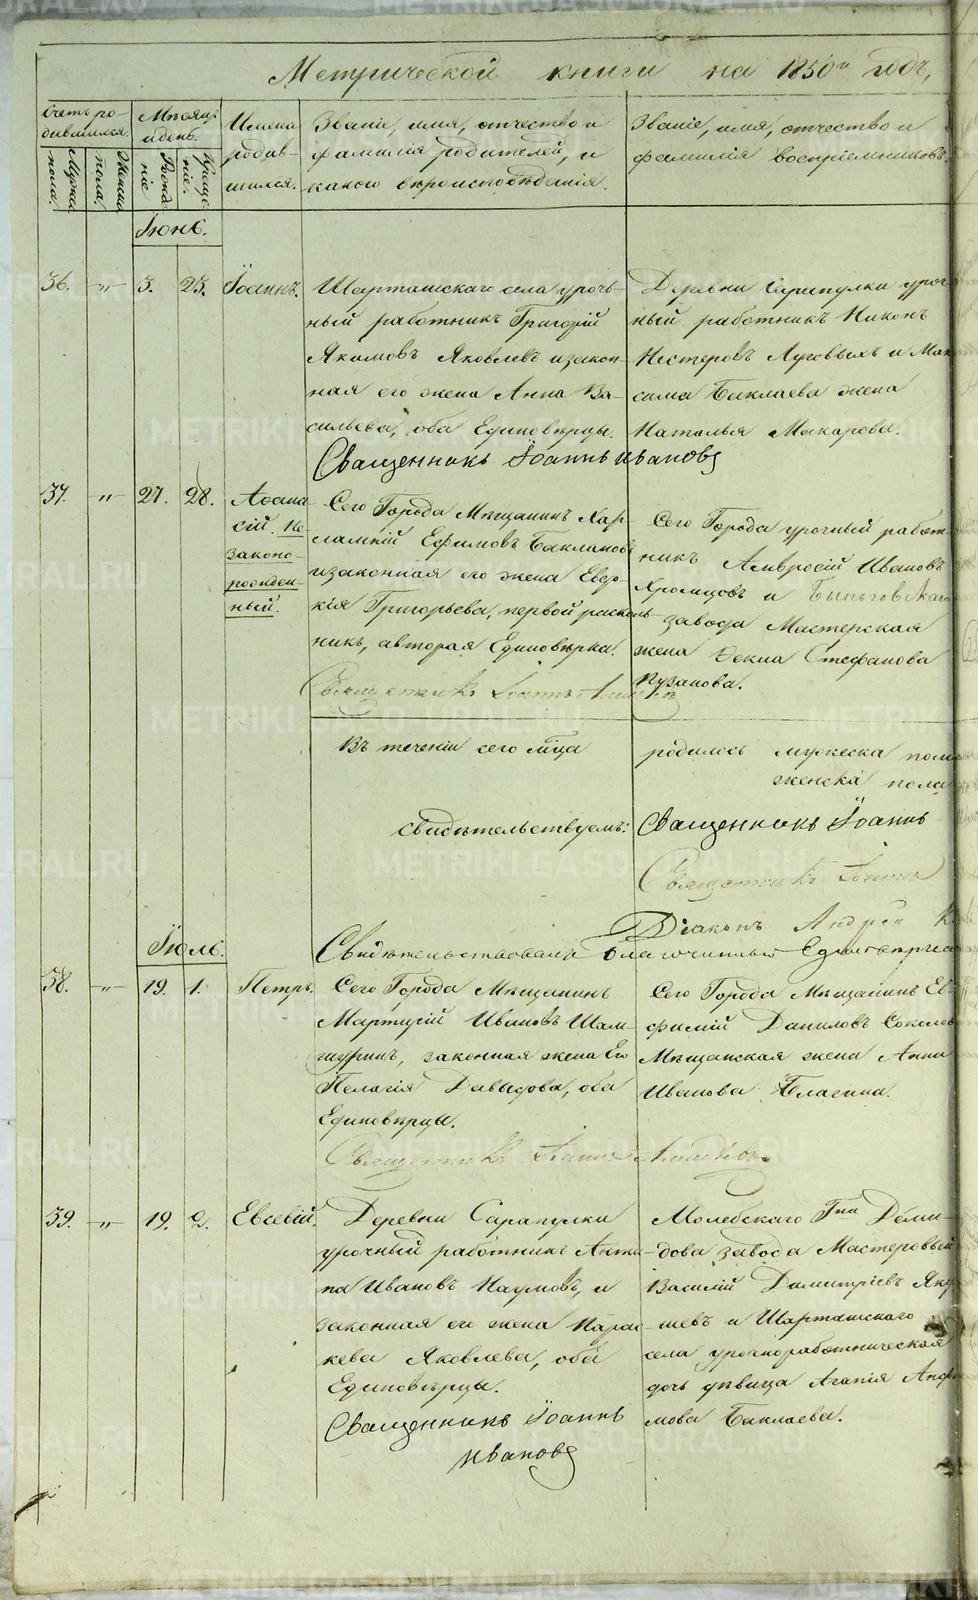 Метрической книги на 1850й годъ,
Счетъ ро-
дившихся.
Мужеска
пола.
Женска
пола.
Мѣсяцъ
и день.
Рожде
ніе
Креще
ніе.
Имена
родив-
шихся.
Званіе, имя, отчество и
фамилія родителей, и
какого вѣроисповѣданія.
Званіе, имя, отчество и
фамилія воспріемниковъ.
Іюнь.
36. „ 3. 25. Іоаннъ.
Шарташскаго села уроч-
ный работникъ Григорій
Якимовъ Яковлевъ и закон-
ная его жена Анна Ва-
сильева, оба Единовѣрцы.
Деревни Сарапулки уроч
ный работникъ Никонъ
Нестеровъ Луговыхъ и Мак
сима Баклаева жена
Наталья Макарова.
Священникъ Іоаннъ Ивановъ
37. „ 27. 28. Афана
сій. Не
законо-
рожден-
ный.
Сего Города Мѣщанинъ Хар-
лампій Ефимовъ Баклановъ
и законная его жена Евдо-
кія Григорьева, первой расколь-
никъ, а вторая Единовѣрка.
Сего Города урочный работ-
никъ Амвросій Ивановъ
Хромцовъ и Быньговскаго
завода Мастерская
жена Ѳекла Стефанова
Пузанова.
Священникъ Іоаннъ
Въ теченіи сего мѣца родилось мужеска пола
женска пола
свидѣтельствуемъ: Священникъ Іоаннъ
Священникъ Іоаннъ
Діаконъ Андрей
Іюль.
Свидѣтельствовалъ Благочинный
38. „ 19. 1. Петръ.
Сего Города Мѣщанинъ
Мартирій Ивановъ Шам-
шуринъ, законная жена Его
Пелагія Давыдова, оба
Единовѣрцы.
Сего Города Мѣщанинъ Ев-
фимій Даниловъ Соколов
Мѣщанская жена Анна
Иванова Благина.
Священникъ Іоаннъ
39. „ 19. 2. Евсевій.
Деревни Сарапулки
урочный работникъ Анти-
па Ивановъ Наумовъ, и
законная его жена Парас-
кева Яковлева, оба
Единовѣрцы.
Молебскаго Гна Деми-
дова завода Мастеровый
Василій Димитріевъ Яку
шевъ и Шарташскаго
села урочноработническая
дочь дѣвица Агапія Анфи
мова Баклаева.
Священникъ Іоаннъ
Ивановъ
METRIKI.GASO-URAL.RU